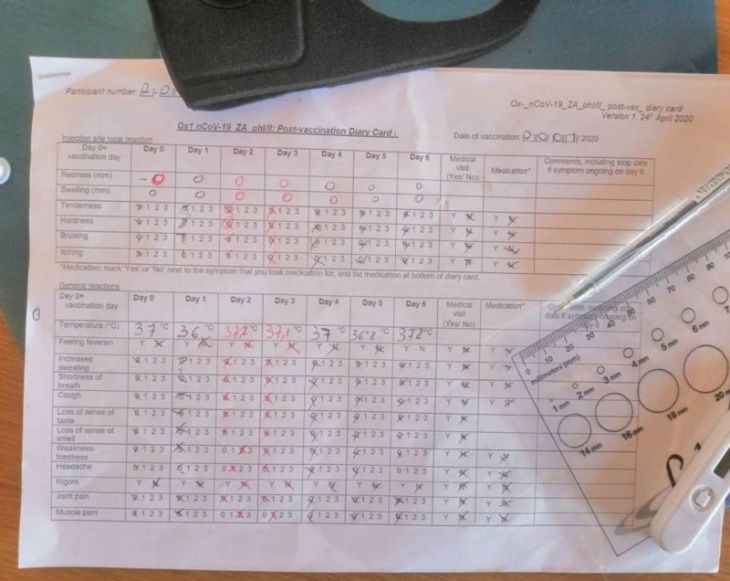 Participant number:
Ox-_nCoV-19_ZA_phI/II_ post-vax_ diary card
Version 1, 24th April 2020
Ox1 nCoV-19 ZA phI/II: Post-vaccination Diary Card :
Date of vaccination: 2020
Injection site local reaction
Day 0= vaccination day Day 0 Day 1 Day 2 Day 3 Day 4 Day 5 Day 6 Medical visit (Yes/ No) Medication* Comments, including stop date if symptom ongoing on day 6
Redness (mm) 0 0 0 0 0 0 0
Swelling (mm) 0 0 0 0 0 0 0
Tenderness 0 1 2 3 0 1 2 3 0 1 2 3 0 1 2 3 0 1 2 3 0 1 2 3 0 1 2 3 Y N Y N
Hardness 0 1 2 3 0 1 2 3 0 1 2 3 0 1 2 3 0 1 2 3 0 1 2 3 0 1 2 3 Y N Y N
Bruising 0 1 2 3 0 1 2 3 0 1 2 3 0 1 2 3 0 1 2 3 0 1 2 3 0 1 2 3 Y N Y N
Itching 0 1 2 3 0 1 2 3 0 1 2 3 0 1 2 3 0 1 2 3 0 1 2 3 0 1 2 3 Y N Y N
*Medication: mark 'Yes' or 'No' next to the symptom that you took medication for, and list medication at bottom of diary card.
General reactions
Day 0= vaccination day Day 0 Day 1 Day 2 Day 3 Day 4 Day 5 Day 6 Medical visit (Yes/ No) Medication* date if symptom ongoing on
Temperature (°C) 37 °C 36 °C 37.2 °C 37,1 °C 37 °C 36.8 °C 37.2 °C
Feeling feverish Y N Y N Y N Y N Y N Y N Y N Y N Y N
Increased sweating 0 1 2 3 0 1 2 3 0 1 2 3 0 1 2 3 0 1 2 3 0 1 2 3 0 1 2 3 Y N Y N
Shortness of breath 0 1 2 3 0 1 2 3 0 1 2 3 0 1 2 3 0 1 2 3 0 1 2 3 0 1 2 3 Y N Y N
Cough 0 1 2 3 0 1 2 3 0 1 2 3 0 1 2 3 0 1 2 3 0 1 2 3 0 1 2 3 Y N Y N
Loss of sense of taste 0 1 2 3 0 1 2 3 0 1 2 3 0 1 2 3 0 1 2 3 0 1 2 3 0 1 2 3 Y N
Loss of sense of smell 0 1 2 3 0 1 2 3 0 1 2 3 0 1 2 3 0 1 2 3 0 1 2 3 0 1 2 3 Y N
Weakness/ tiredness 0 1 2 3 0 1 2 3 0 1 2 3 0 1 2 3 0 1 2 3 0 1 2 3 0 1 2 3 Y N Y N
Headache 0 1 2 3 0 1 2 3 0 1 2 3 0 1 2 3 0 1 2 3 0 1 2 3 0 1 2 3 Y N Y N
Rigors Y N Y N Y N Y N Y N Y N Y N Y N Y N
Joint pain 0 1 2 3 0 1 2 3 0 1 2 3 0 1 2 3 0 1 2 3 0 1 2 3 0 1 2 3 Y N Y N
Muscle pain 0 1 2 3 0 1 2 3 0 1 2 3 0 1 2 3 0 1 2 3 0 1 2 3 0 1 2 3 Y N Y N
0 10 20 30 40 50 60 70 80 90
millimeters (mm)
1 mm 2 mm 3 mm 4 mm 5 mm 6 mm
14 mm 16 mm 18 mm 20